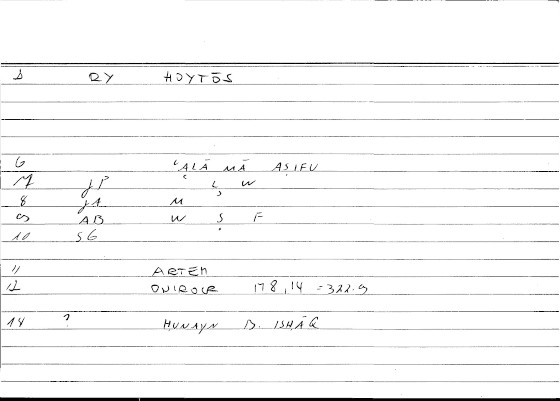 1 QY HDYTŌS
6 ʿALĀ MĀ AṢIFU
7 JP ʿ L W
8 JA M
9 AB W Ṣ F
10 SG
11 ARTEM
12 ONIROCR 178,14 =322.9
14 ? ḤUNAYN B. ISḤĀQ